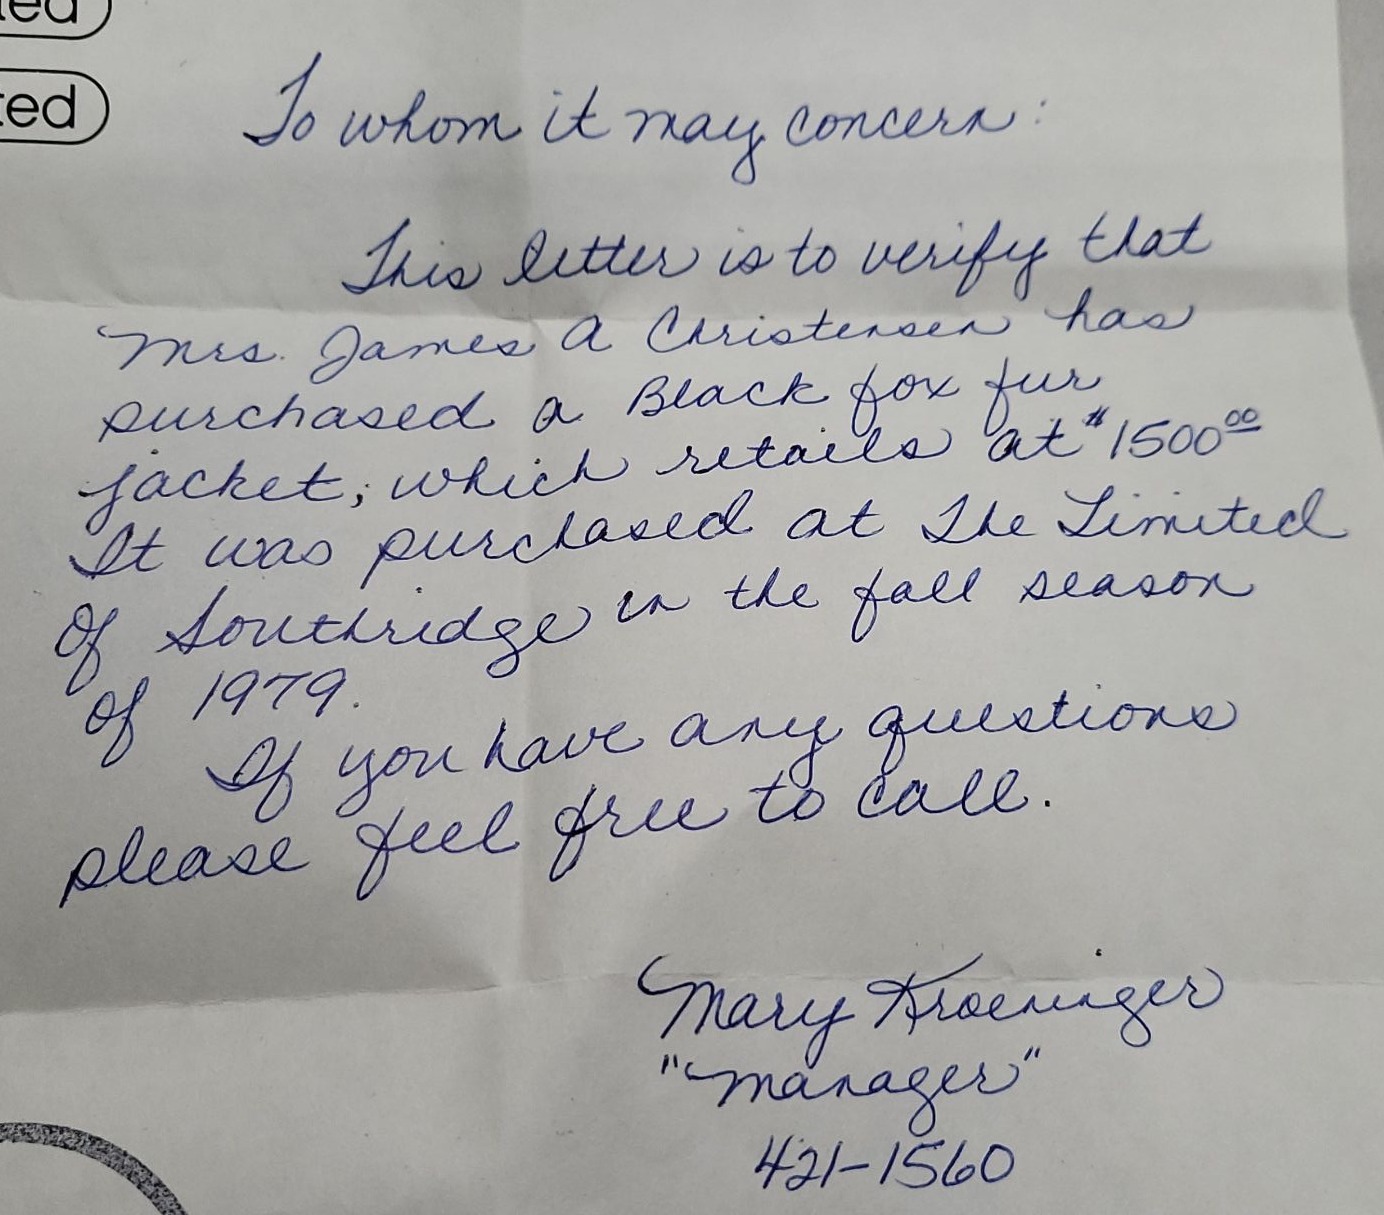 ted
ted
To whom it may concern:
This letter is to verify that
Mrs. James A Christensen has
purchased a Black fox fur
jacket; which retails at $1500.00
It was purchased at The Limited
Of Southridge in the fall season
of 1979.
If you have any questions
please feel free to call.
Mary Kroeninger
"Manager"
421-1560